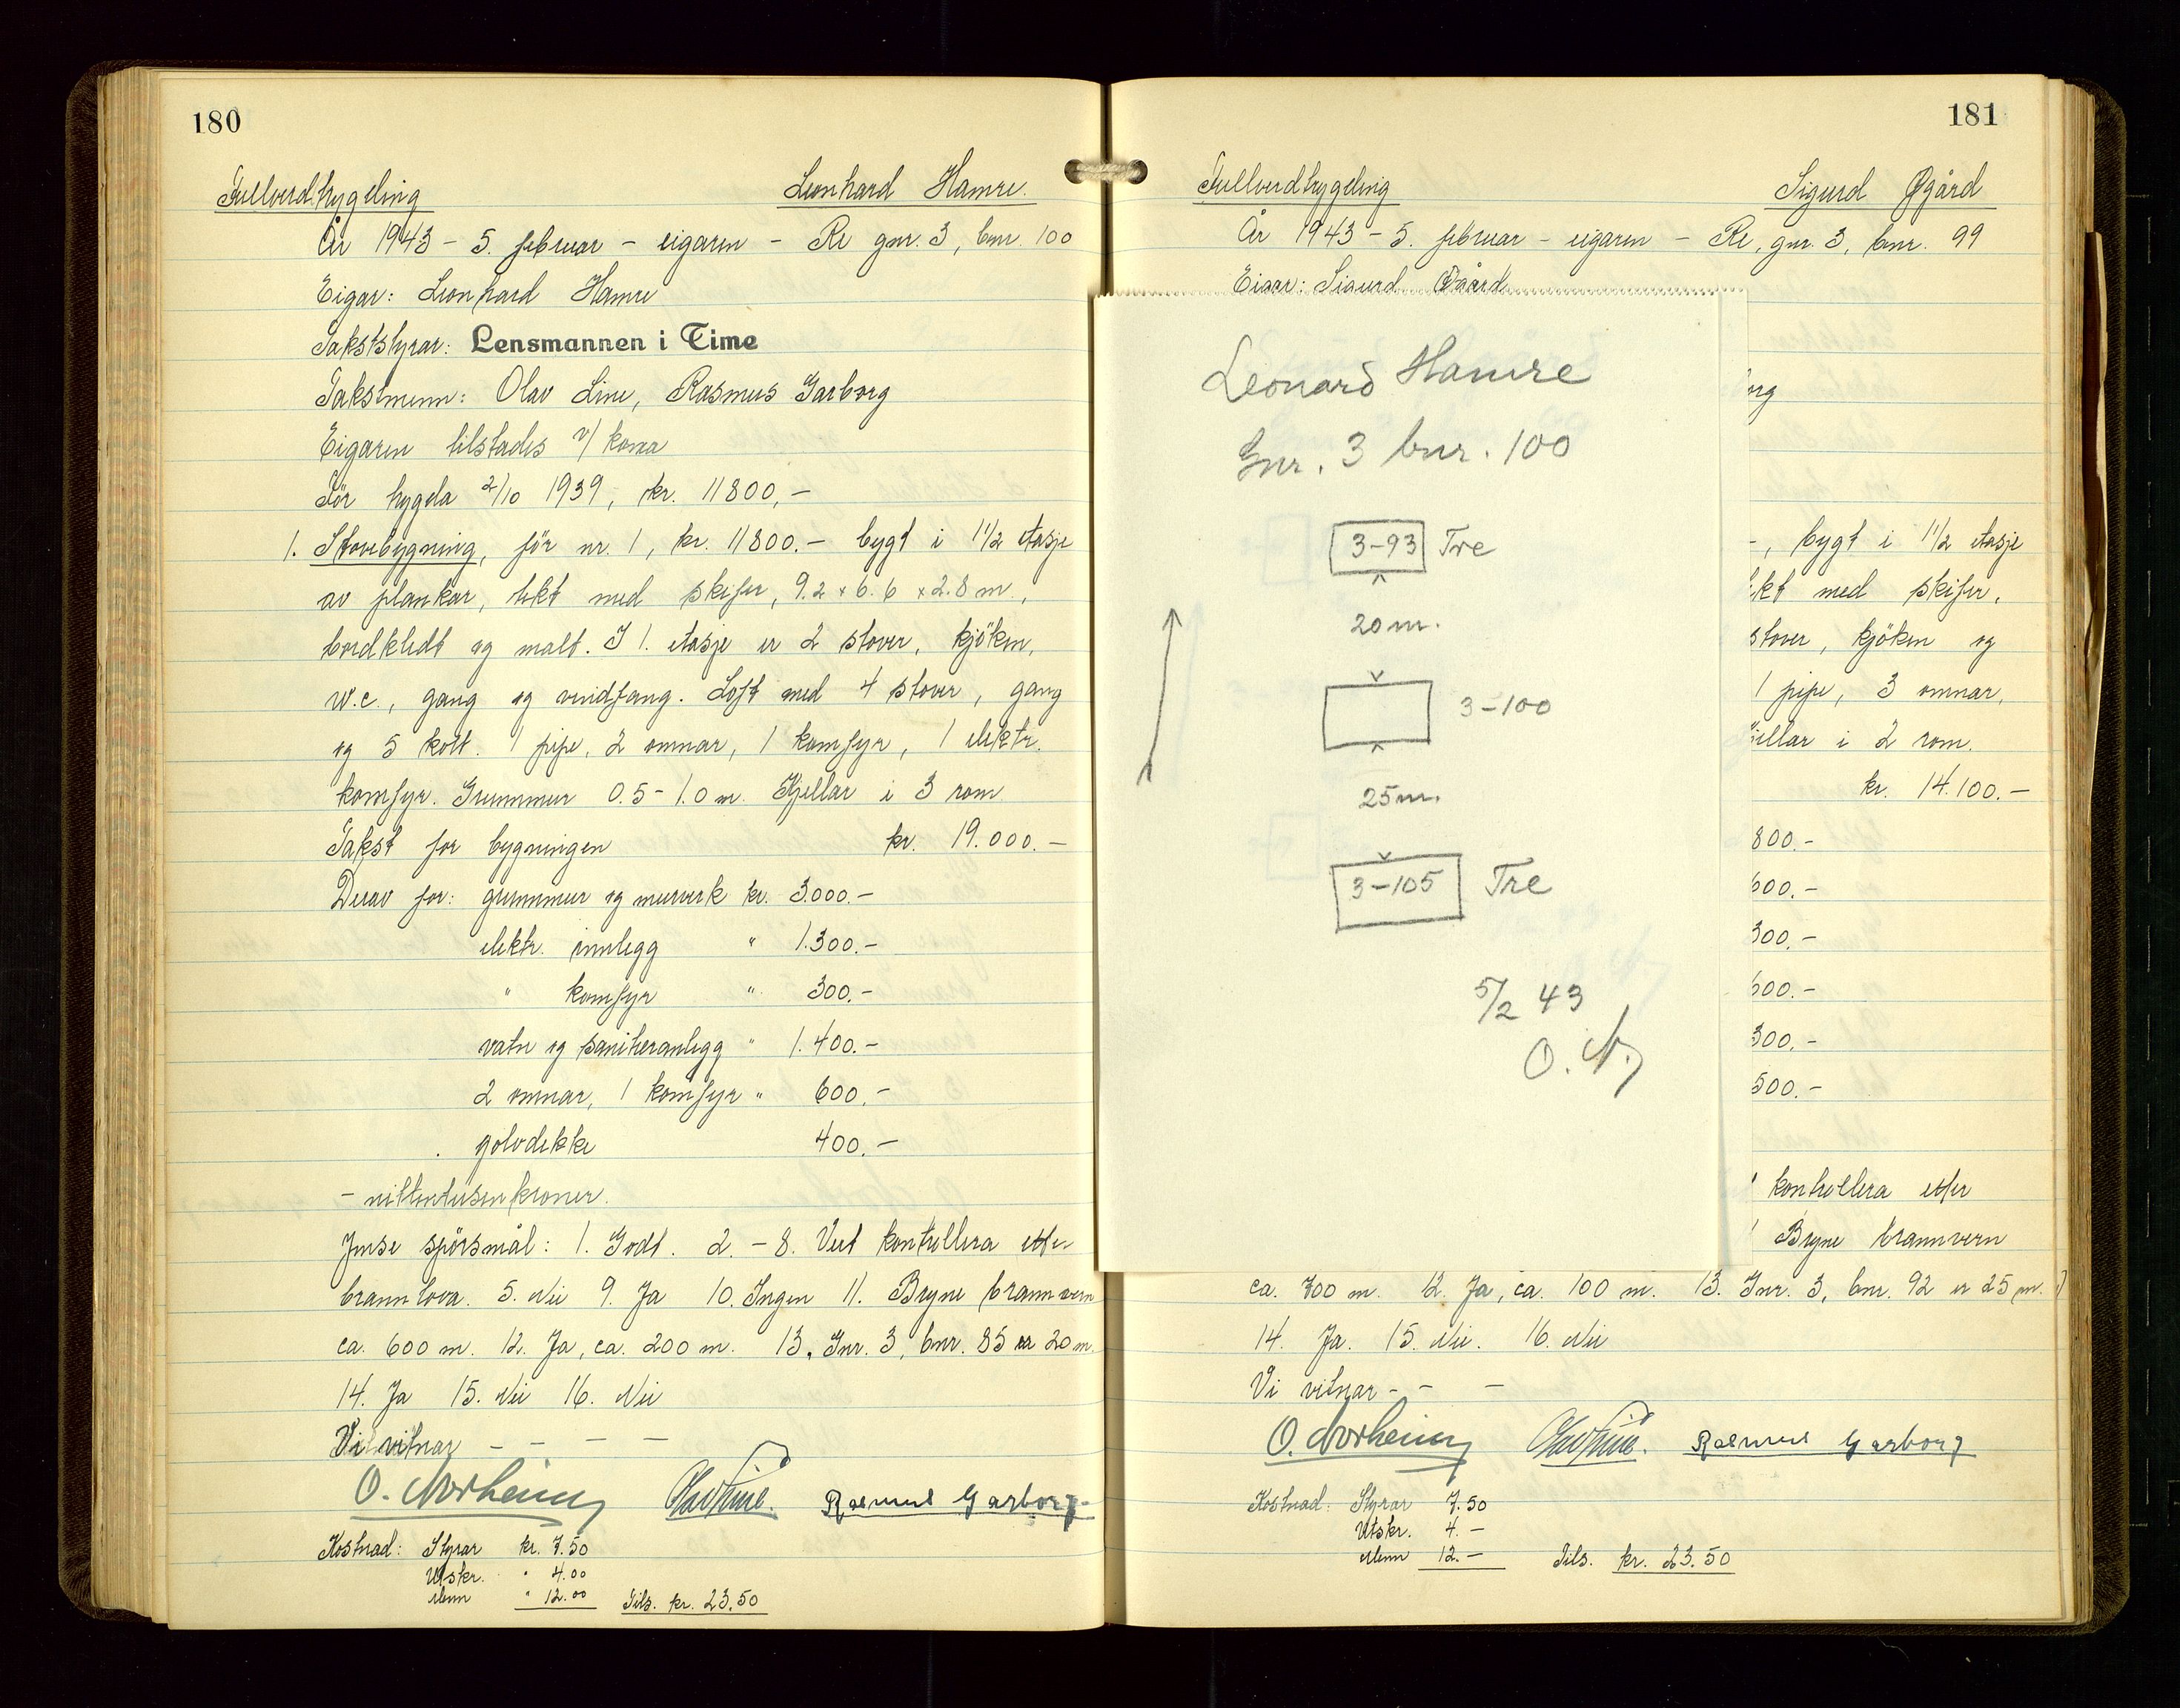 180
Fullverdhygeling Leonhard Hamre.
År 1943 - 5. februar - eigaren - Re gnr. 3, bnr. 100
Eigar: Leonhard Hamre
Takststyrar: Lensmannen i Time
Takstmenn: Olav Line, Rasmus Garborg
Eigaren tilstades v/ kona
Før hygela 2/10 1939, kr. 11800,-
1. Stovebygning, før nr. 1, kr. 11800.- bygt i 1 1/2 etasje
av plankar, tekt med skifer, 9.2 x 6.6 x 2.8 m.,
bordkledt og malt. I 1. etasje er 2 stover, kjöken,
w.c., gang og vindfang. Loft med 4 stover, gang
og 5 kott. 1 pipe, 2 omnar, 1 komfyr, 1 elektr.
komfyr. Grunnmur 0.5-1.0 m. Kjellar i 3 rom
Takst for bygningen kr. 19.000.-
Derav for: grunnmur og murverk kr. 3.000.-
elektr. innlegg " 1.300.-
" komfyr " 300.-
vatn og saniteranlegg " 1.400.-
2 omnar, 1 komfyr " 600.-
golvdekke 400.-
- nittentusen kroner.
Ymse spörsmål: 1. Godt. 2. - 8. Vert kontrollera etter
brannlova. 5. Nei 9. Ja 10. Ingen 11. Bryne brannvern
ca. 600 m. 12. Ja, ca. 200 m. 13. Gnr. 3, bnr. 85 er 20 m.
14. Ja 15. Nei 16. Nei
Vi vitnar - - - -
O. Norheim Olav Line. Rasmus Garborg
Kostnad: Styrar kr. 7.50
Utskr. " 4.00
Menn " 12.00 Tils. kr. 23.50
181
Fullverdhygeling Sigurd Øgård
År 1943 - 5. februar - eigaren - Re, gnr. 3, bnr. 99
Eigar: Sigurd Øgård
Leonard Hamre
Gnr. 3 bnr. 100
3-93 Tre
20 m.
3-100
25 m.
3-105 Tre
5/2 43
O. N.
org
-, bygt i 1 1/2 etasje
ekt med skifer,
stover, kjöken og
1 pipe, 3 omnar,
jellar i 2 rom.
kr. 14.100.-
800.-
600.-
300.-
600.-
300.-
500.-
kontrollera etter
Bryne brannvern
ca. 700 m. 12. Ja, ca. 100 m. 13. Gnr. 3, bnr. 92 er 25 m.
14. Ja. 15. Nei. 16. Nei
Vi vitnar - - -
O. Norheim Olav Line. Rasmus Garborg
Kostnad: Styrar 7.50
Utskr. 4.-
Menn 12.- Tils. kr. 23.50